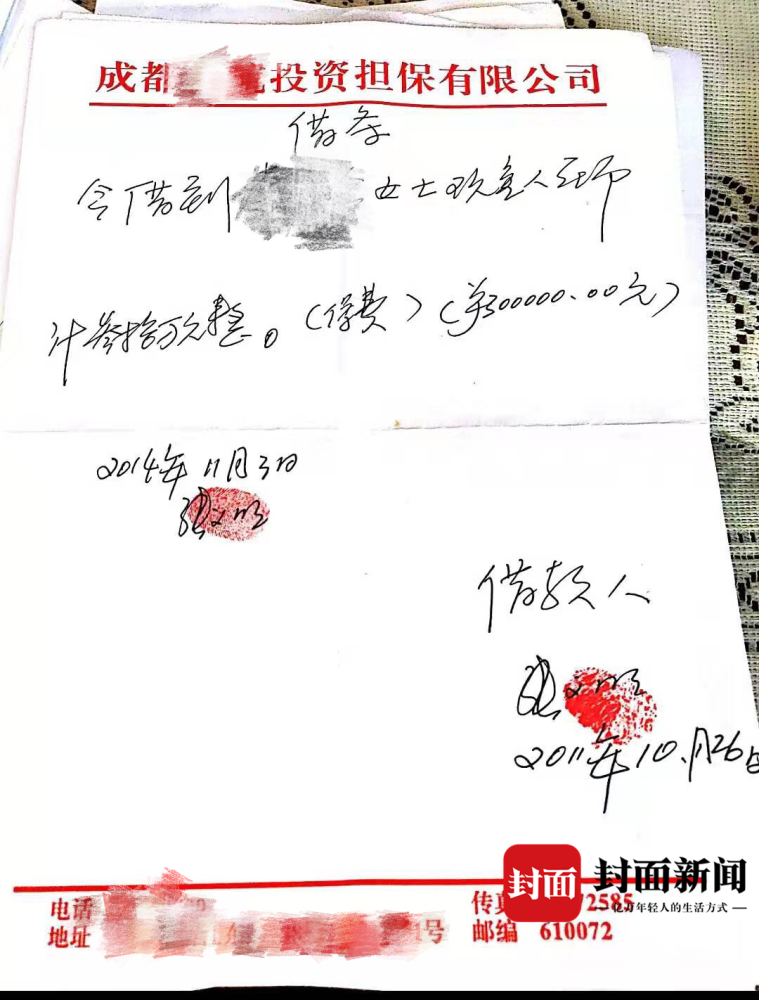 成都 投资担保有限公司
借条
今借到 女士现金人民币
计叁拾万元整。(保费)(¥300000.00元)
2014年11月3日
张文明
借款人
张文明
2011年10月26日
电话
地址 1号
传真 72585
邮编 610072
封面
封面新闻
—亿万年轻人的生活方式—